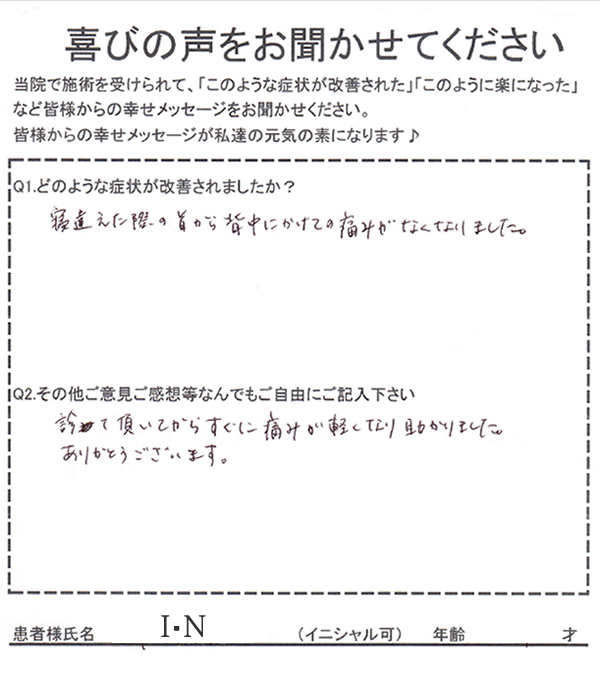 喜びの声をお聞かせてください
当院で施術を受けられて、「このような症状が改善された」「このように楽になった」
など皆様からの幸せメッセージをお聞かせください。
皆様からの幸せメッセージが私達の元気の素になります♪
Q1.どのような症状が改善されましたか？
寝違えた際の首から背中にかけての痛みがなくなりました。
Q2.その他ご意見ご感想等なんでもご自由にご記入下さい
診て頂いてからすぐに痛みが軽くなり助かりました。
ありがとうございます。
患者様氏名 I・N （イニシャル可） 年齢 才